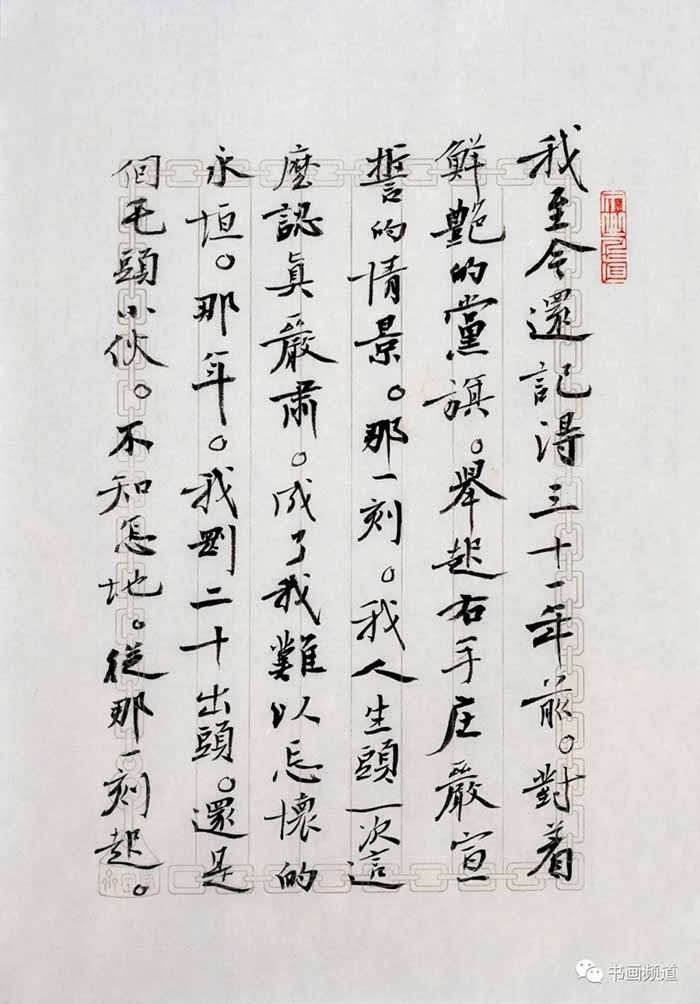 我至今還記得三十一年前。對着
鮮艷的黨旗。舉起右手庄嚴宣
誓的情景。那一刻。我人生頭一次這
麼認真嚴肅。成了我難以忘懷的
永恒。那年。我剛二十出頭。還是
個毛頭小伙。不知怎地。從那一刻起。
书画频道